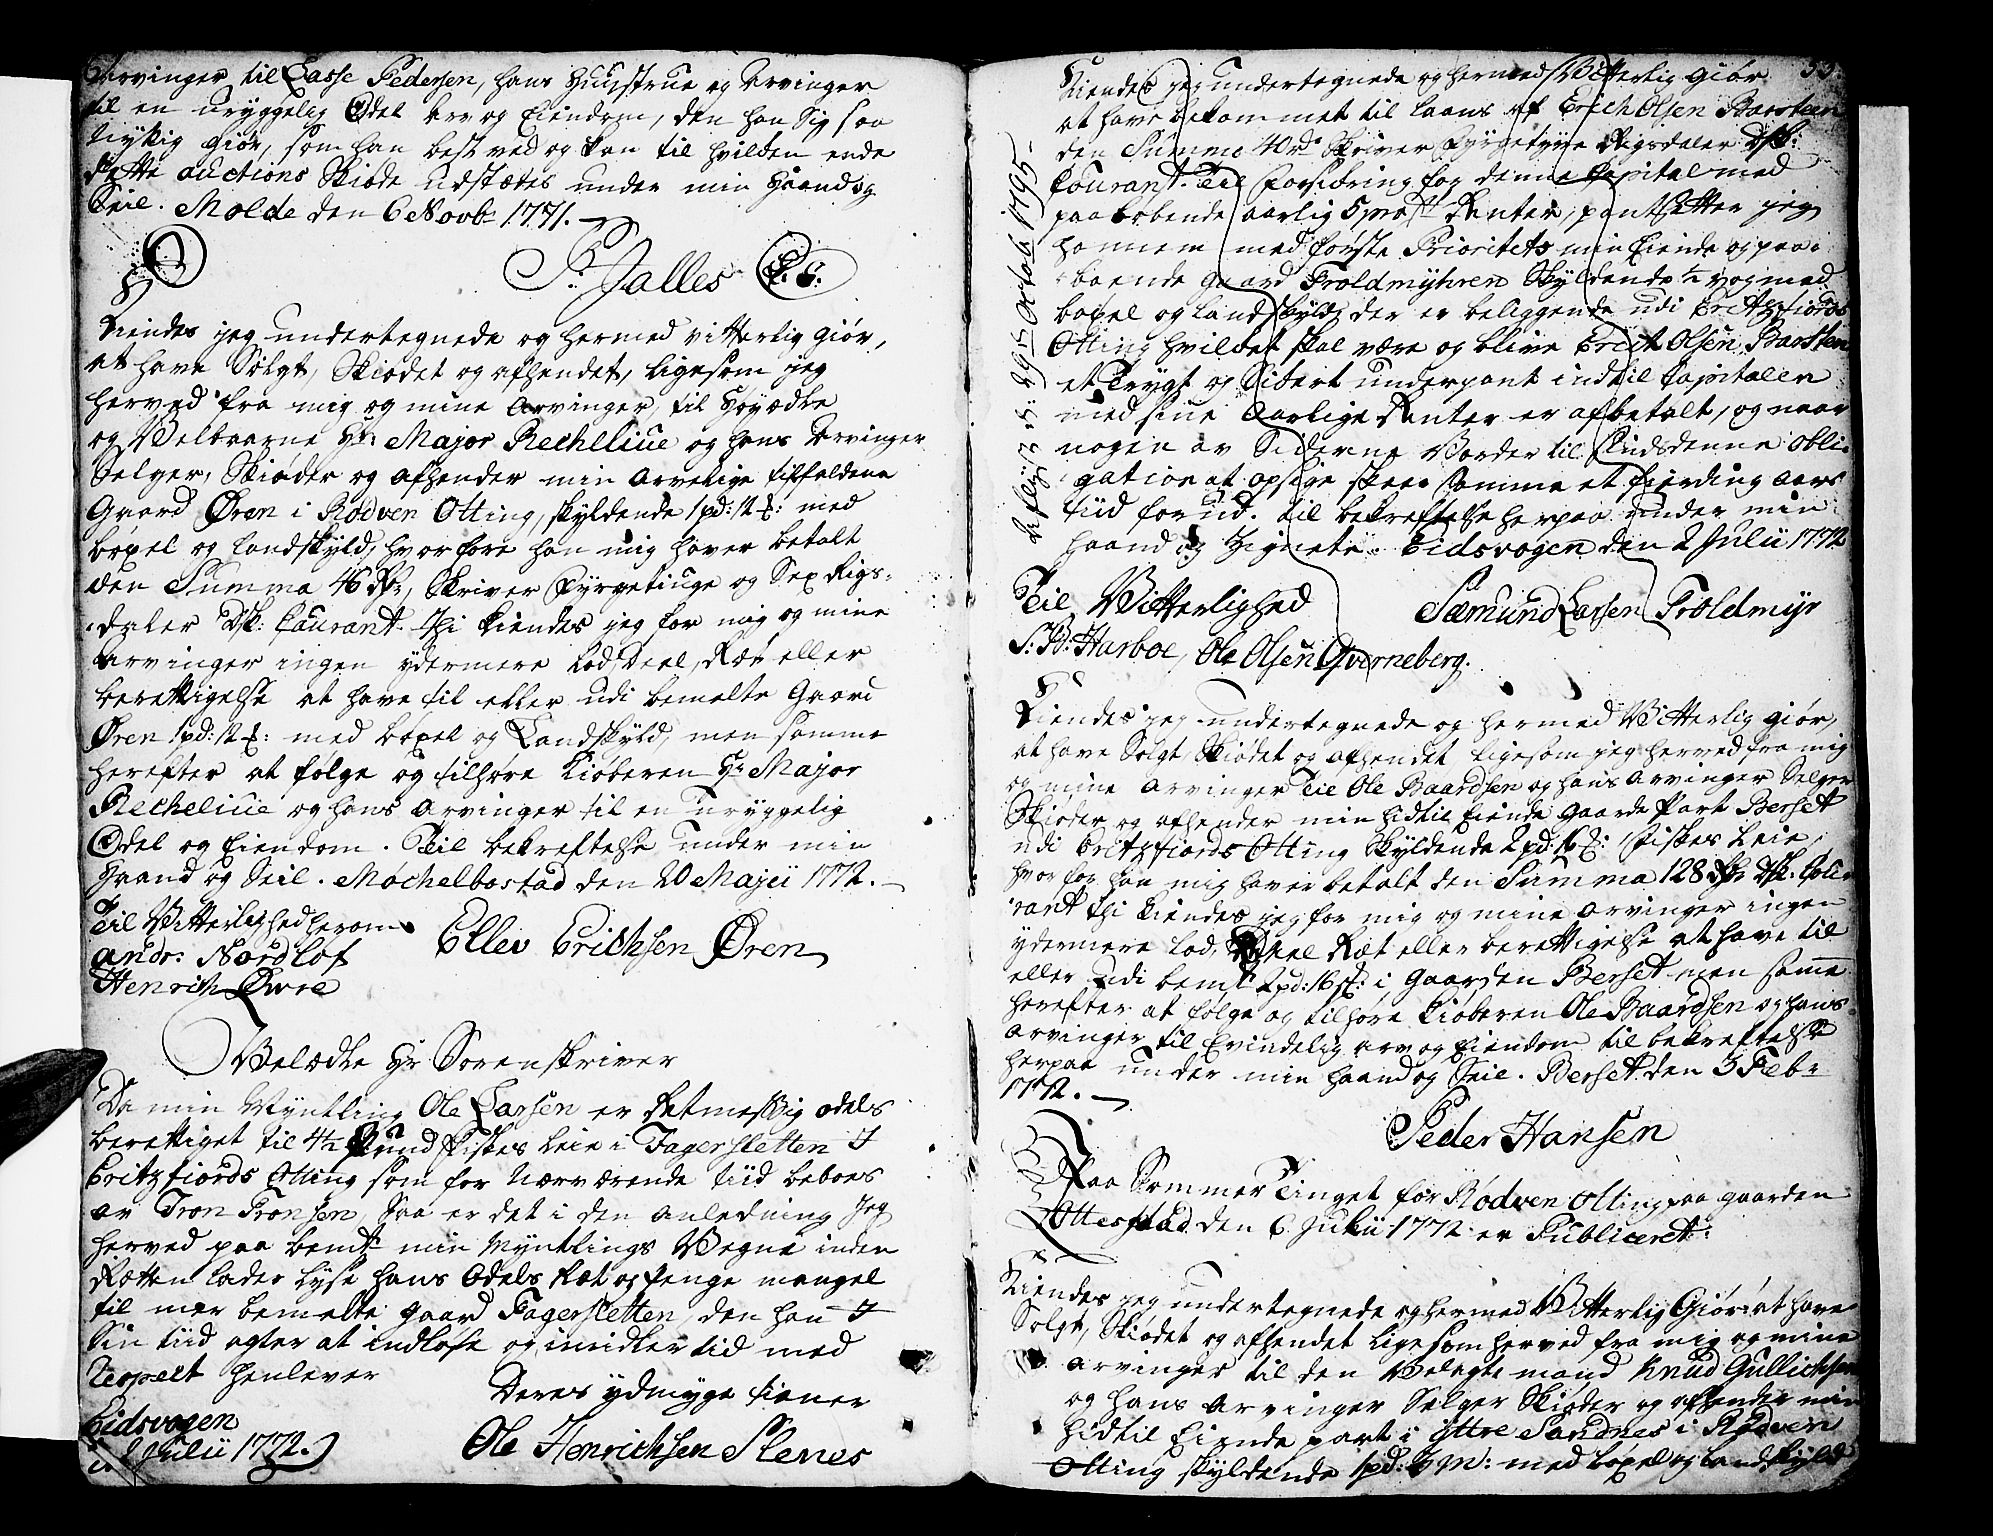 Arvinger til Lasse Pedersen, hans Huustrue og Arvinger
til en uryggelig Odel Arv og Eiendom, den han Sig saa
Nyttig giør, som han best ved og kan til hvilken ende
dette auctions Skiøde udstædes under min Haand og
Seil. Molde den 6 Novbr 1771.
P: Jalles L.S.
Kiendes jeg undertegnede og hermed vitterlig giør,
at have Solgt, Skiødet og afhendet, ligesom jeg
herved fra mig og mine Arvinger, til Høyædle
og Velbaarne Hr: Major Rechelliue og hans Arvinger
Selger, Skiøder og afhender min arvelige tilfaldene
Gaard Øren i Rødven Otting, skyldende 1 pd: 12 : med
bøxel og landskyld, hvorfore han mig haver betalt
den Summa 46 Rdr, Skriver Fyrgetiuge og Sex Rigs-
daler Dsk: Courant. thi kiendes jeg for mig og mine
arvinger ingen ydermere Lod, Deel, Ræt eller
berettigelse at have til eller udi bemelte Gaard
Øren 1 pd: 12 : med bøxel og Landskyld, men samme
herefter at følge og tilhøre Kiøberen Hr Major
Recheliue og hans Arvinger til en uryggelig
Odel og Eiendom. Til bekreftelse under min
Haand og Seil. Mochelbostad den 20 Maji 1772.
Til Vitterlighed herom
andr: Nordlof Ellev Erichsen Øren
Henrich Øwre
Velædle Hr Sorenskriver
Da min Myntling Ole Larsen er Retmessig odels
berettiget til 4½ Pund Fiskes Leie i Fagersletten I
Eritzfiords Otting som for Nærværende tiid beboes
av Tron Tronsen, Saa er det i den anledning Jeg
herved paa bemte min Myntlings Vegne inden
Rætten lader lyse hans Odels Ræt og Penge mangel
til mer bemelte gaard Fagersletten, den han I
Sin tiid agter at indløse og imidlertid med
Respect henlever
Deres ydmyge tiener
Eidsvogen
d. 2 Julii 1772. Ole Henrichsen Slenes
53.
Kiendes jeg undertegnede og hermed Vitterlig giør
at have bekommet til laans af Erich Olsen Barsteen
den Summe 40 rd Skriver Fyrgetyve Rigsdaler Dsk:
Courant. Til Forsikring for denne Capital med
paaløbende aarlig 5 procto Renter, pantsetter jeg
hannem med første Prioritets min Eiende og paa-
boende gaard Troldmyhren Skyldende ½ vog med
bøxel og landskyld, der er beliggende udi Eritzfiords
Otting hvilket skal være og blive Erich Olsen Barsteen
et trygt og Sikert underpant indtil Capitalen
med sine Aarlige Renter er afbetalt, og naar
nogen av Siderne Vorder til Sinds denne obli-
gation at opsige skeer samme et fierding aars
tiid forud. til bekreftelse herpaa under min
haand og Zignete. Eidsvogen den 2 Julii 1772
Til Vitterlighed Sæmund Larsen Troldmyr
S: B: Harboe, Ole Olsen Qverneberg.
Aflyst d: 29 Octob 1795
Kiendes jeg undertegnede og hermed Vitterlig giør,
at have Solgt, Skiødet og afhendet ligesom jeg herved fra mig
og mine Arvinger Til Ole Baardsen og hans Arvinger Selger
Skiøder og afhender min hidtil Eiende gaarde Part Berset
udi Eritzfiords Otting Skyldende 2 pd: 16 : Fiskes Leie,
hvorfor han mig haver betalt den Summa 128 Rdr Dsk. Cou-
rant thi kiendes jeg for mig og mine arvinger ingen
ydermere lod, Deel Ræt eller berettigelse at have til
eller udi bemte 2 pd: 16 : i gaarden Berset men samme
herefter at følge og tilhøre kiøberen Ole Baardsen og hans
arvinger til Evindelig arv og Eiendom til bekreftelse
herpaa under min haand og Seil. Berset den 3 Febr
1772.
Peder Hansen
Paa Sommer Tinget for Rødven Otting paa gaarden
Ottestad den 6 Julii 1772 er Publiceret:
Kiendes jeg undertegnede og hermed Vitterlig Giør at have
Solgt, Skiødet og afhendet ligesom herved fra mig og mine
arvinger til den Velagte mand Knud Gullichsen
og hans Arvinger Selger Skiøder og afhender min
hidtil Eiende part i yttre Sandnes i Rødven
Otting skyldende 1 pd: : med bøxel og landskyld